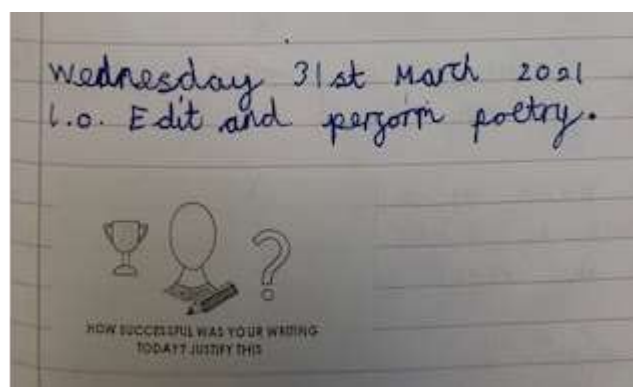 Wednesday 31st March 2021
L.o. Edit and perform poetry.
HOW SUCCESSFUL WAS YOUR WRITING
TODAY? JUSTIFY THIS